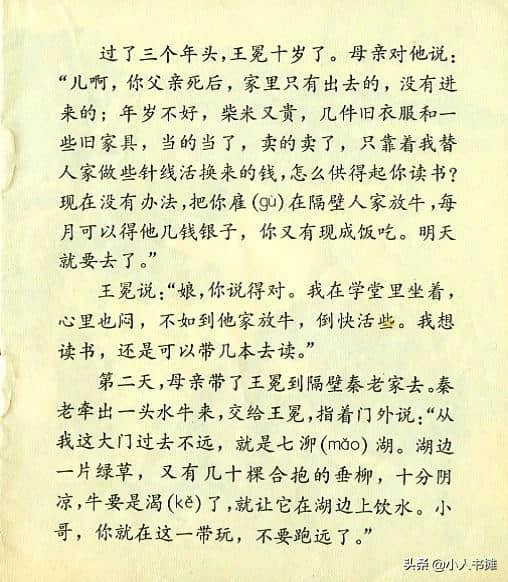 过了三个年头，王冕十岁了。母亲对他说：
“儿啊，你父亲死后，家里只有出去的，没有进
来的；年岁不好，柴米又贵，几件旧衣服和一
些旧家具，当的当了，卖的卖了，只靠着我替
人家做些针线活换来的钱，怎么供得起你读书？
现在没有办法，把你雇(gù)在隔壁人家放牛，每
月可以得他几钱银子，你又有现成饭吃。明天
就要去了。”
王冕说：“娘，你说得对。我在学堂里坐着，
心里也闷，不如到他家放牛，倒快活些。我想
读书，还是可以带几本去读。”
第二天，母亲带了王冕到隔壁秦老家去。秦
老牵出一头水牛来，交给王冕，指着门外说：“从
我这大门过去不远，就是七泖(mǎo)湖。湖边
一片绿草，又有几十棵合抱的垂柳，十分阴
凉，牛要是渴(kě)了，就让它在湖边上饮水。小
哥，你就在这一带玩，不要跑远了。”
头条 @小人书摊